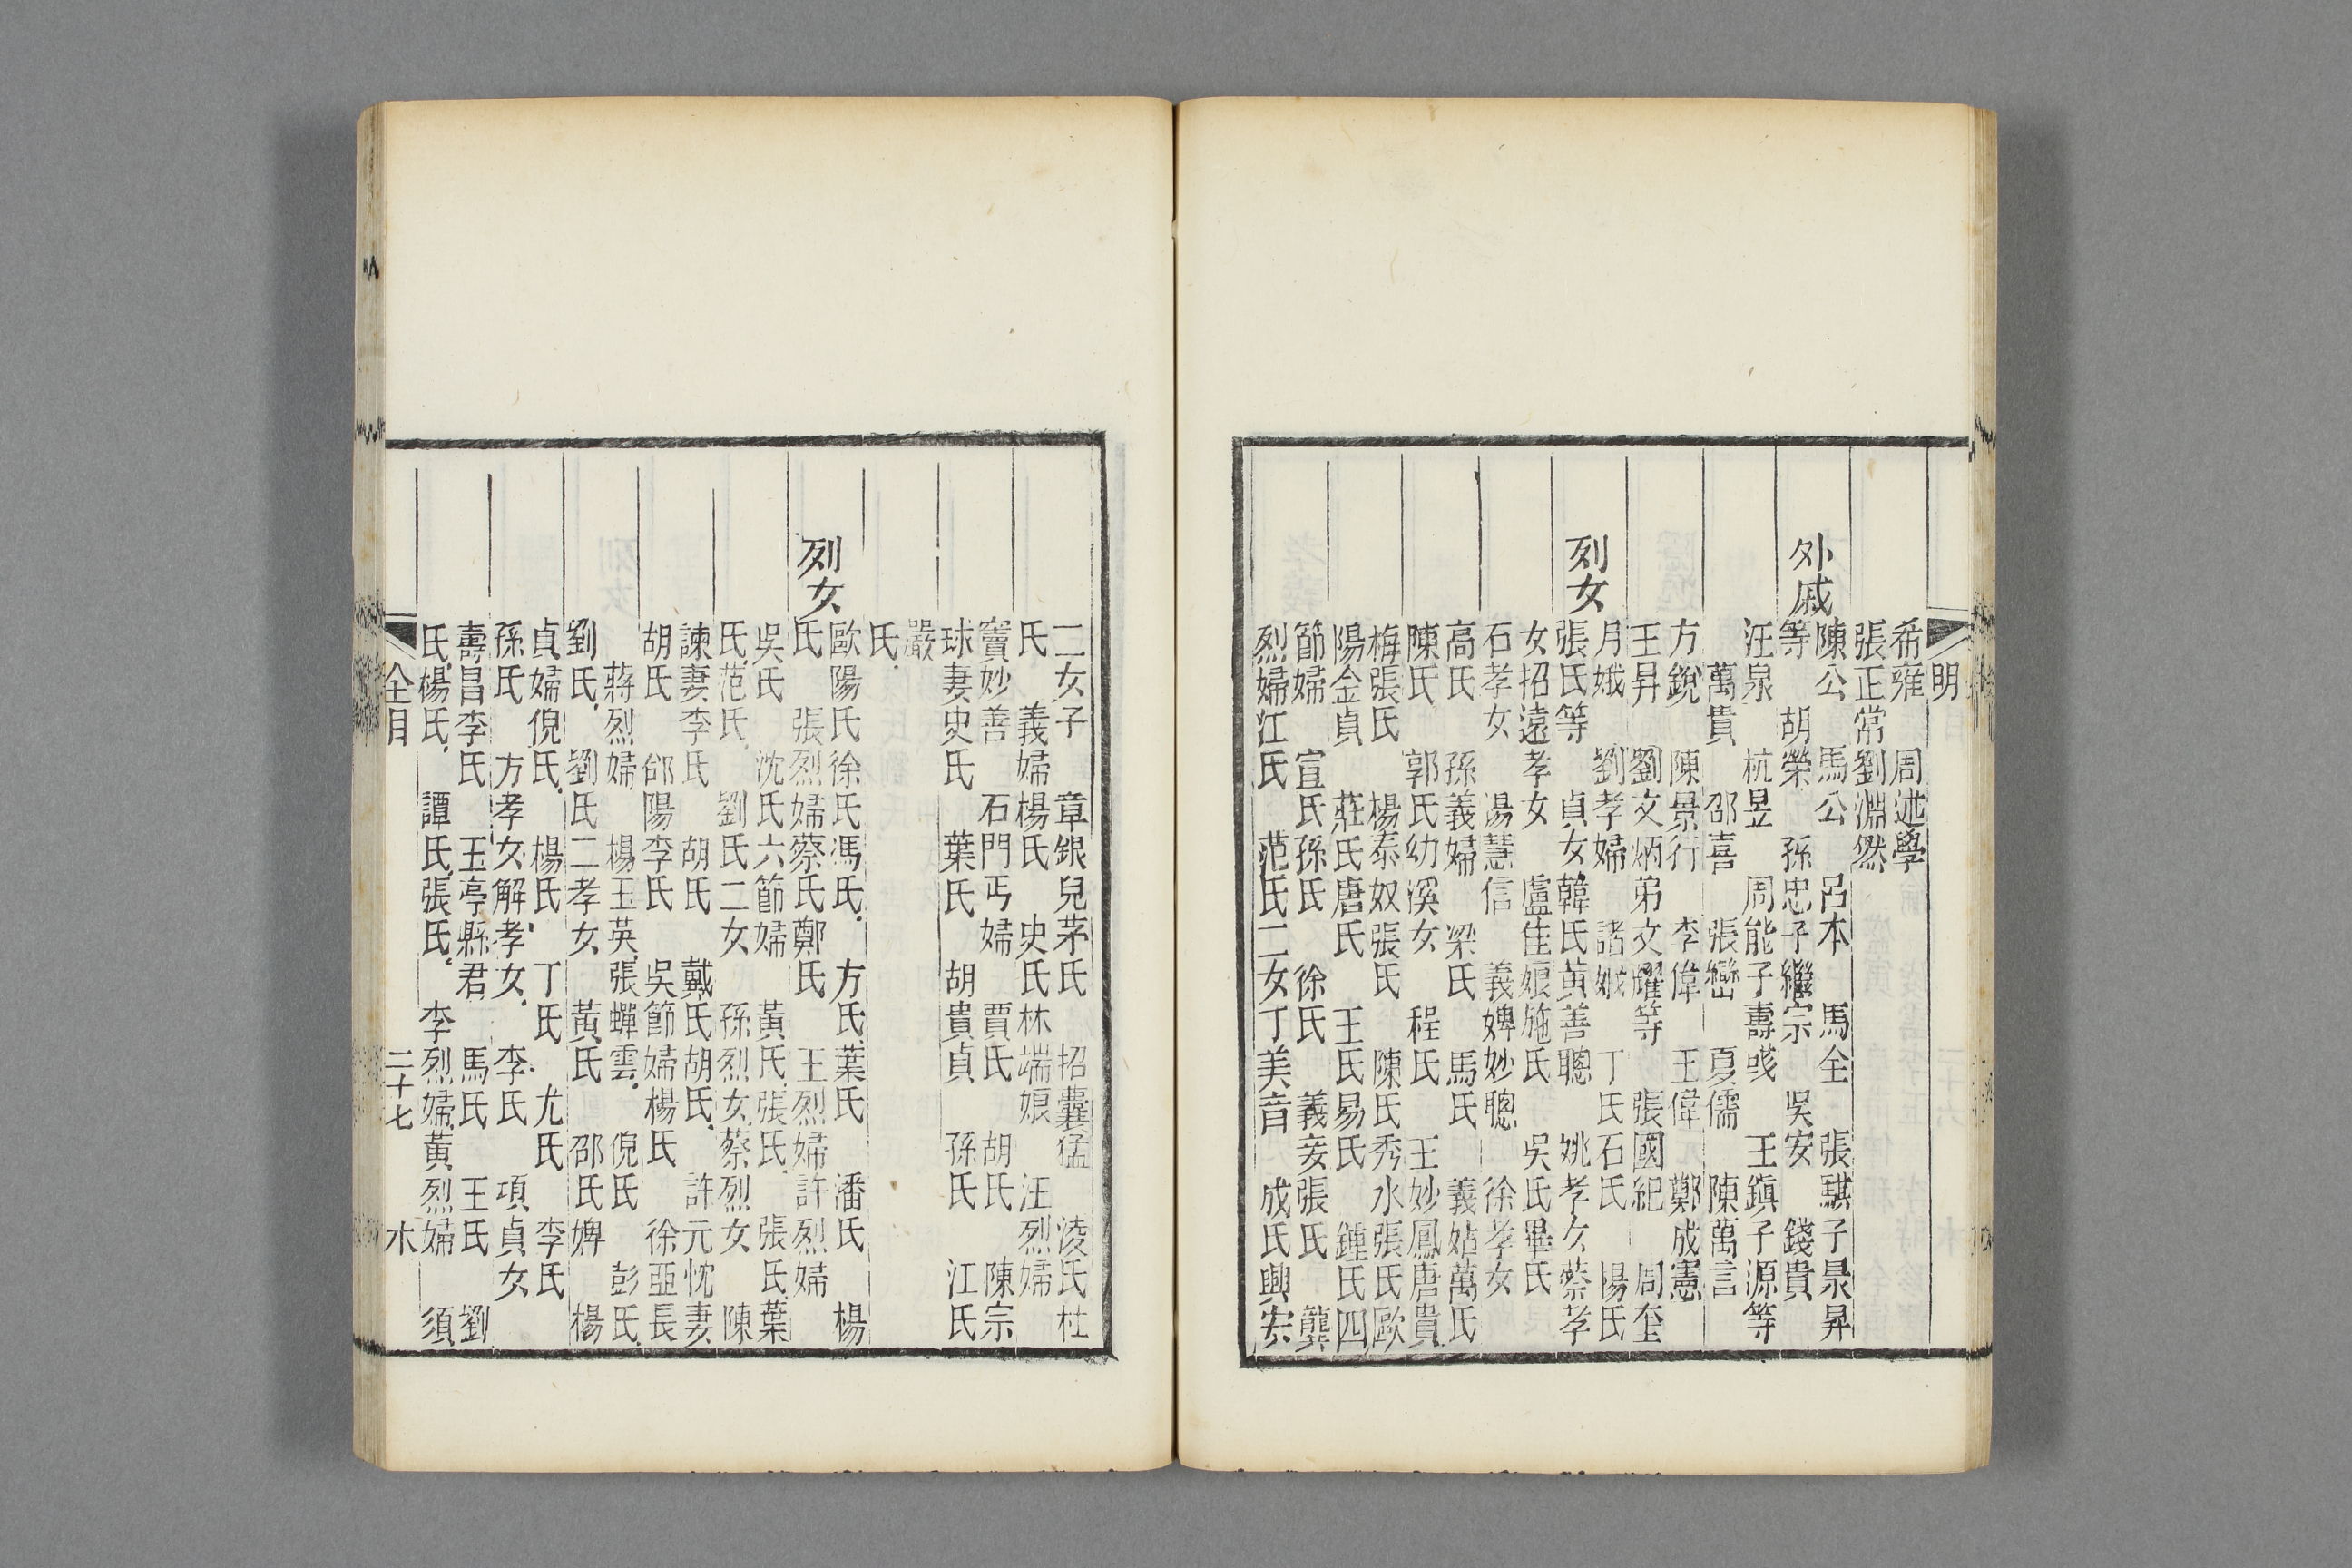 明
希雍　周述學
張正常劉淵然
外戚
陳公　馬公　呂本　馬全　張騏子杲昇
等　胡榮　孫忠子繼宗　吳安　錢貴
汪泉　杭昱　周能子壽彧　王鎮子源等
萬貴　邵喜　張巒　夏儒　陳萬言
方銳　陳景行　李偉　王偉　鄭成憲
王昇　劉文炳弟文耀等　張國紀　周奎
列女
月娥　劉孝婦　諸娥　丁氏石氏　楊氏
張氏等　貞女韓氏黃善聰　姚孝女蔡孝
女招遠孝女　盧佳娘施氏　吳氏畢氏
石孝女　湯慧信　義婢妙聰　徐孝女
高氏　孫義婦　梁氏　馬氏　義姑萬氏
陳氏　郭氏幼溪女　程氏　王妙鳳唐貴
梅張氏　楊泰奴張氏　陳氏秀水張氏歐
陽金貞　莊氏唐氏　王氏易氏　鍾氏四
節婦　宣氏孫氏　徐氏　義妾張氏　龔
烈婦江氏　范氏二女丁美音　成氏興安
二女子　章銀兒茅氏　招囊猛　淩氏杜
氏　義婦楊氏　史氏林端娘　汪烈婦
竇妙善　石門丐婦　賈氏　胡氏　陳宗
球妻史氏　葉氏　胡貴貞　孫氏　江氏
嚴
氏
列女
歐陽氏徐氏馮氏　方氏葉氏　潘氏　楊
氏　張烈婦蔡氏鄭氏　王烈婦許烈婦
吳氏　沈氏六節婦　黃氏張氏　張氏葉
氏范氏　劉氏二女　孫烈女蔡烈女　陳
諫妻李氏　胡氏　戴氏胡氏　許元忱妻
胡氏　郃陽李氏　吳節婦楊氏　徐亞長
蔣烈婦　楊玉英張蟬雲　倪氏　彭氏
劉氏　劉氏二孝女　黃氏　邵氏婢　楊
貞婦倪氏　楊氏　丁氏　尤氏　李氏
孫氏　方孝女解孝女　李氏　項貞女
壽昌李氏　玉亭縣君　馬氏　王氏　劉
氏楊氏　譚氏張氏　李烈婦黃烈婦　須
全月　二十七　木